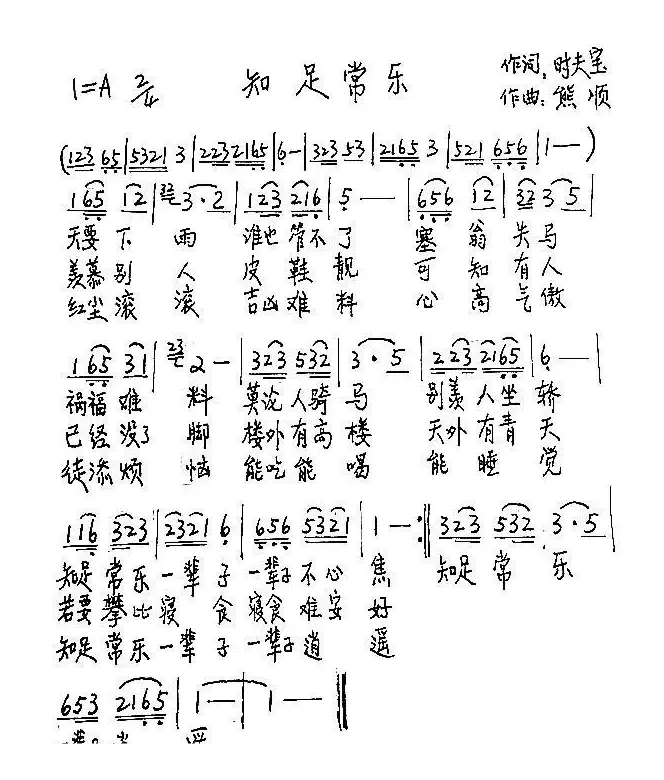 1=A 2/4 知足常乐 作词:时夫宝
作曲:熊顺
(123 65|5321 3|223 2165|6-|323 53|2165 3|521 656|1-)
165 12|22 3·2|123 216|5-|656 12|32 35|
天要下雨 谁也管不了 塞翁失马
羡慕别人 皮鞋靓 可知有人
红尘滚滚 吉凶难料 心高气傲
165 31|23 2-|323 532|3·5|223 2165|6-|
祸福难料 莫说人骑马 别羡人坐轿
已经没了脚 楼外有高楼 天外有青天
徒添烦恼 能吃能喝 能睡觉
116 323|2321 6|656 5321|1-:‖323 532 3·5|
知足常乐一辈子一辈子不心焦 知足常乐
若要攀比寝食寝食难安好
知足常乐一辈子一辈子逍遥
653 2165|1-|1-‖